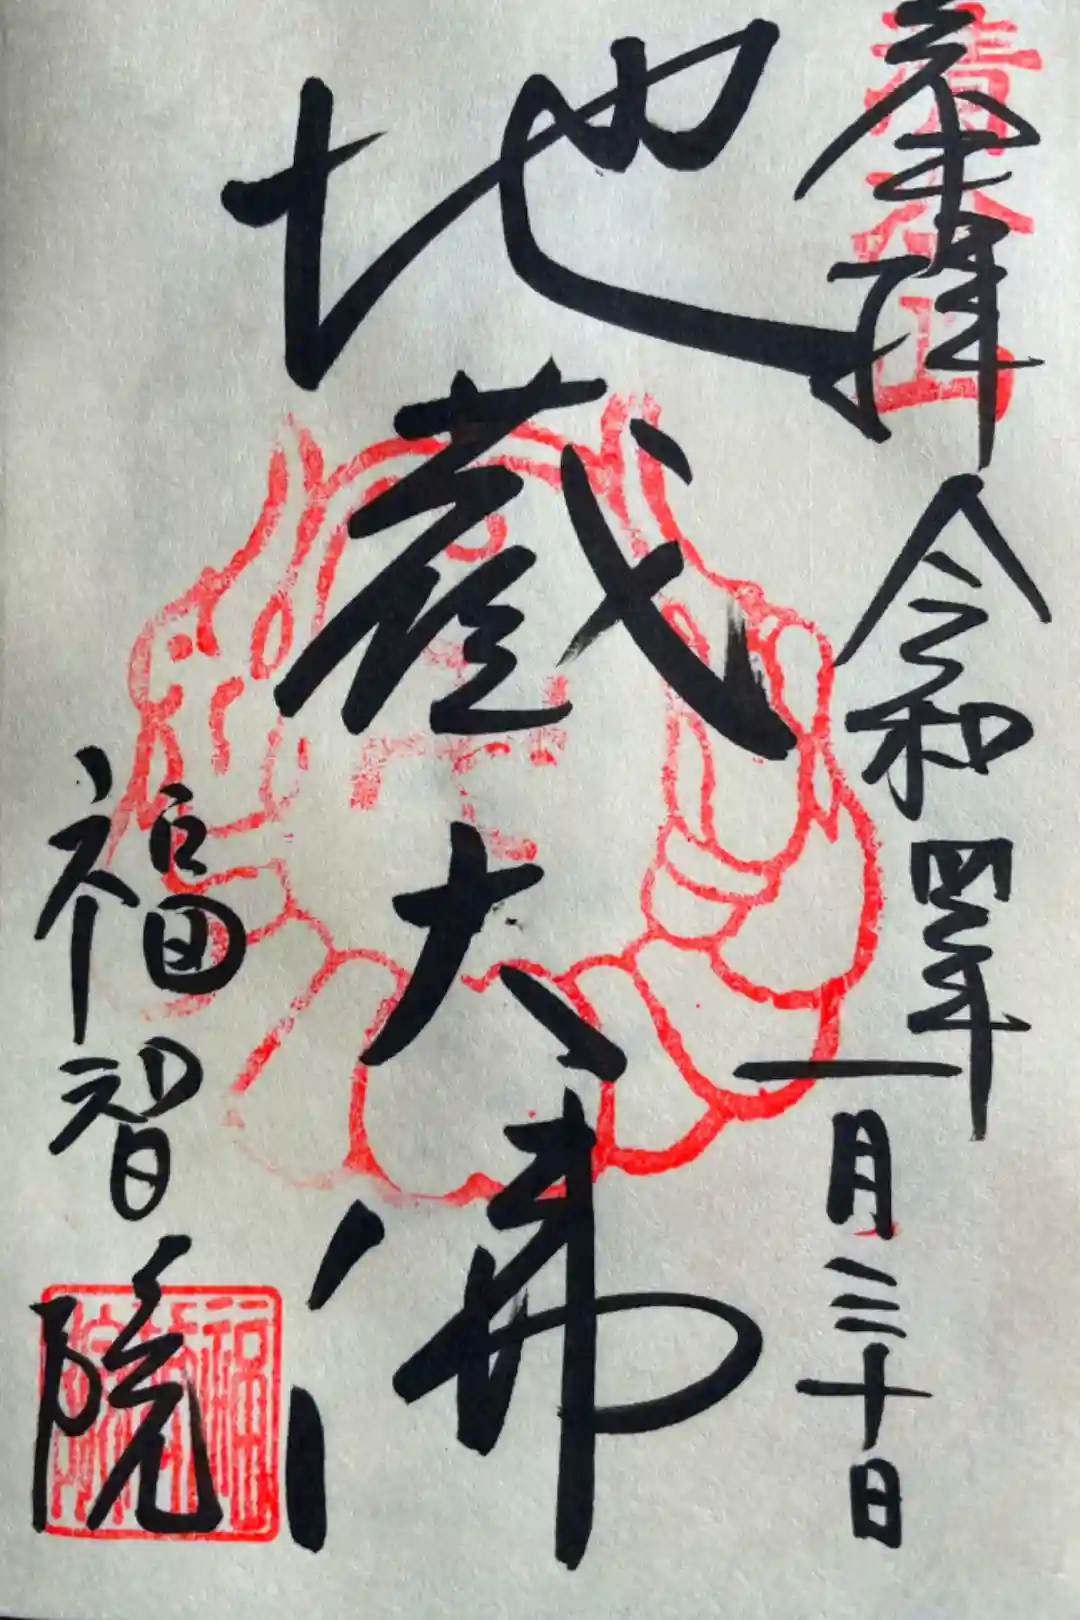 奉拝
清冷山
令和四年
一月三十日
地蔵大佛
福智院
福智院